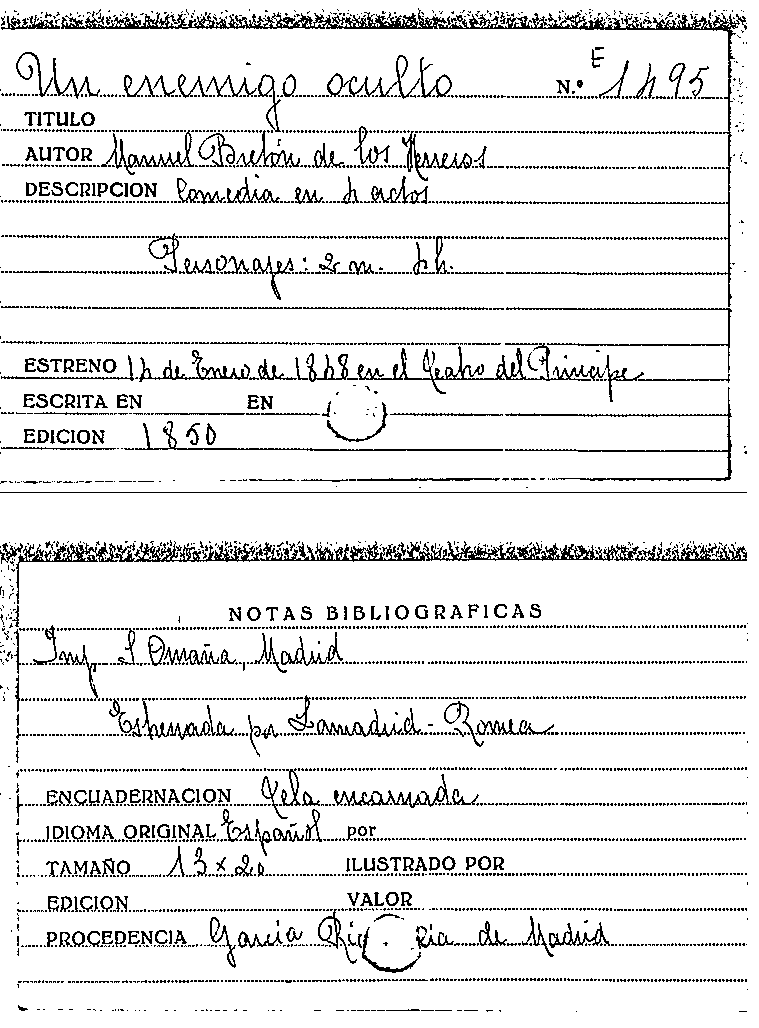 Un enemigo oculto N.º E 1495
TITULO
AUTOR Manuel Bretón de los Herreros
DESCRIPCION Comedia en 4 actos
Personajes: 2 m. 4 h.
ESTRENO 14 de Enero de 1848 en el Teatro del Principe
ESCRITA EN EN
EDICION 1850
NOTAS BIBLIOGRAFICAS
Imp. S Omaña, Madrid
Estrenada por Lamadrid - Romea
ENCUADERNACION Tela encarnada
IDIOMA ORIGINAL Español por
TAMAÑO 13 x 20 ILUSTRADO POR
EDICION VALOR
PROCEDENCIA García Rico de Madrid